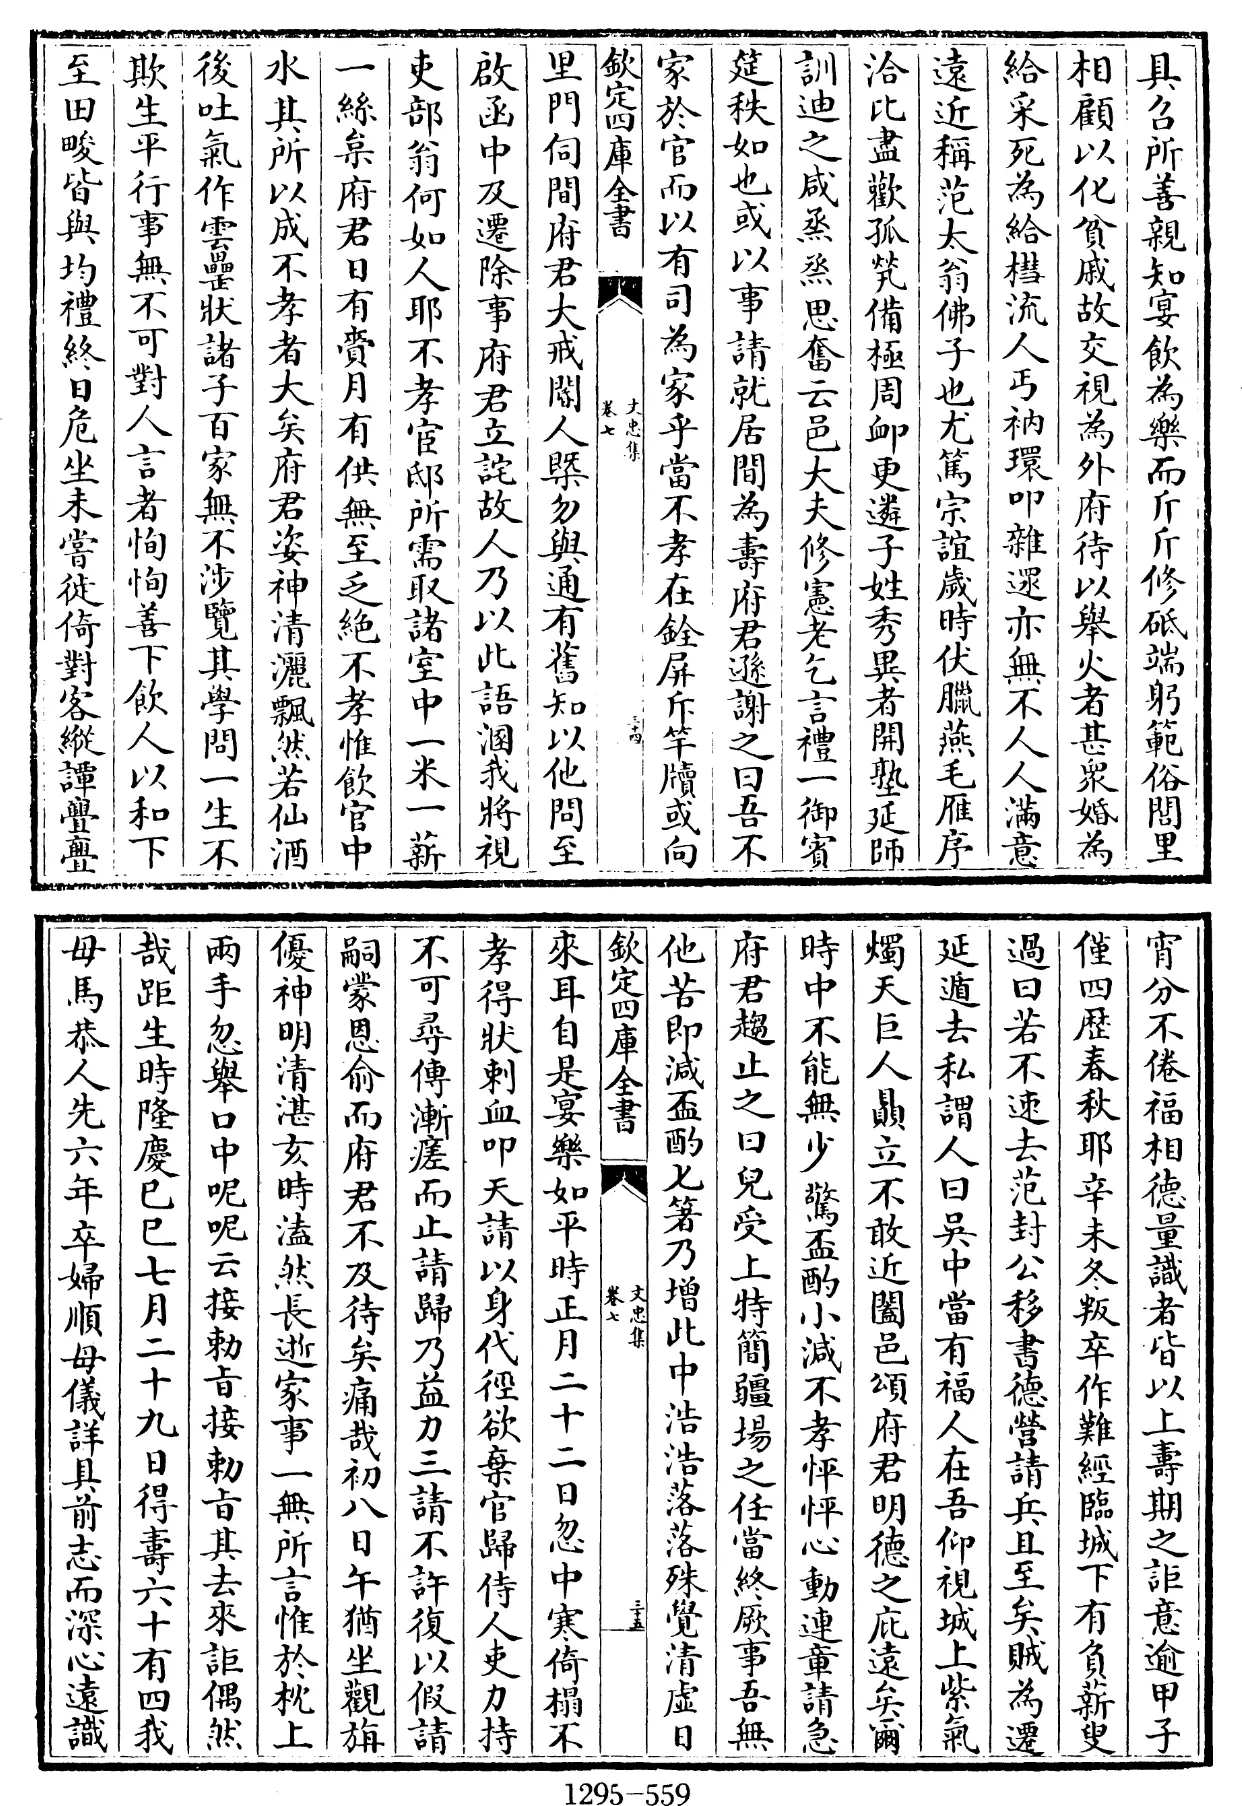 具召所善親知宴飲為樂而斤斤修砥端躬範俗閭里
相顧以化貧戚故交視為外府待以舉火者甚衆婚為
給采死為給槥流人丐衲環叩雜遝亦無不人人滿意
遠近稱范太翁佛子也尤篤宗誼歲時伏臘燕毛雁序
洽比盡歡孤煢備極周卹更遴子姓秀異者開塾延師
訓迪之咸烝烝思奮云邑大夫修憲老乞言禮一御賓
筵秩如也或以事請就居間為壽府君遜謝之曰吾不
家於官而以有司為家乎當不孝在銓屏斥竿牘或向
欽定四庫全書
文忠集
卷七
三十四
里門伺間府君大戒閽人槩勿與通有舊知以他問至
啟函中及遷除事府君立詫故人乃以此語溷我將視
吏部翁何如人耶不孝宦邸所需取諸室中一米一薪
一絲枲府君日有賫月有供無至乏絶不孝惟飲官中
水其所以成不孝者大矣府君姿神清灑飄然若仙酒
後吐氣作雲罍狀諸子百家無不涉覽其學問一生不
欺生平行事無不可對人言者恂恂善下飲人以和下
至田畯皆與均禮終日危坐未嘗徙倚對客縱譚亹亹
宵分不倦福相德量識者皆以上壽期之詎意逾甲子
僅四歴春秋耶辛未冬叛卒作難經臨城下有負薪叟
過曰若不速去范封公移書德營請兵且至矣賊為遷
延遁去私謂人曰吳中當有福人在吾仰視城上紫氣
燭天巨人贔立不敢近闔邑頌府君明德之庇遠矣爾
時中不能無少驚盃酌小減不孝怦怦心動連章請急
府君趨止之曰兒受上特簡疆場之任當終厥事吾無
他苦即減盃酌匕箸乃增此中浩浩落落殊覺清虛日
欽定四庫全書
文忠集
卷七
三十五
來耳自是宴樂如平時正月二十二日忽中寒倚榻不
孝得狀刺血叩天請以身代徑欲棄官歸侍人吏力持
不可尋傳漸瘥而止請歸乃益力三請不許復以假請
嗣蒙恩俞而府君不及待矣痛哉初八日午猶坐觀旃
優神明清湛亥時溘然長逝家事一無所言惟於枕上
兩手忽舉口中呢呢云接勅旨接勅旨其去來詎偶然
哉距生時隆慶己巳七月二十九日得壽六十有四我
母馬恭人先六年卒婦順母儀詳具前志而深心遠識
1295-559